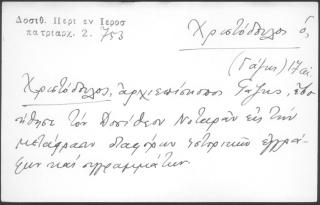 Δοσιθ. Περι εν Ιεροσ
πατριαρχ. 2. 753
Χριστόδουλος ὁ,
(Γάζης) 17 αἰ.
Χριστόδουλος, ἀρχιεπίσκοπος Γάζης, ἐβο
ήθησε τὸν Δοσίθεον Νοταρᾶν εἰς τὴν
μετάφρασιν διαφόρων ἱστορικῶν ἐγγρά-
φων καὶ συγγραμμάτων.